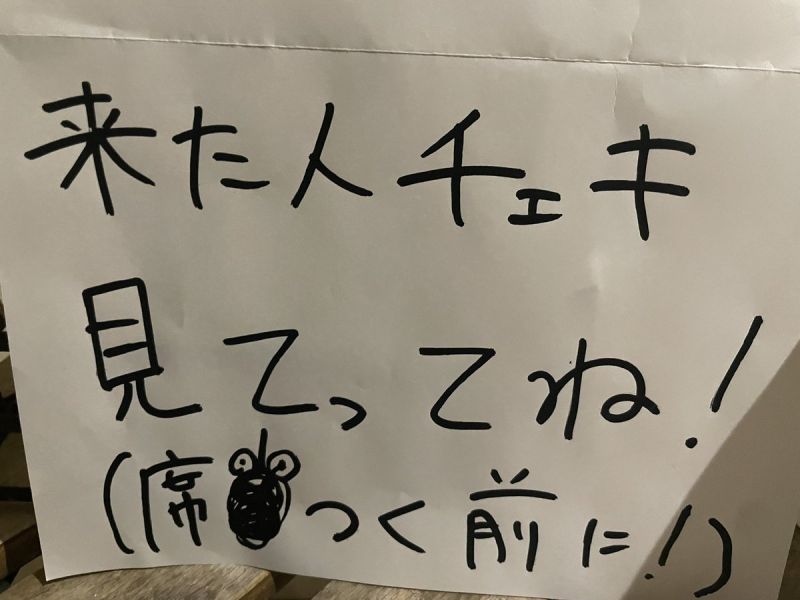 来た人チェキ
見てってね!
(席つく前に!)